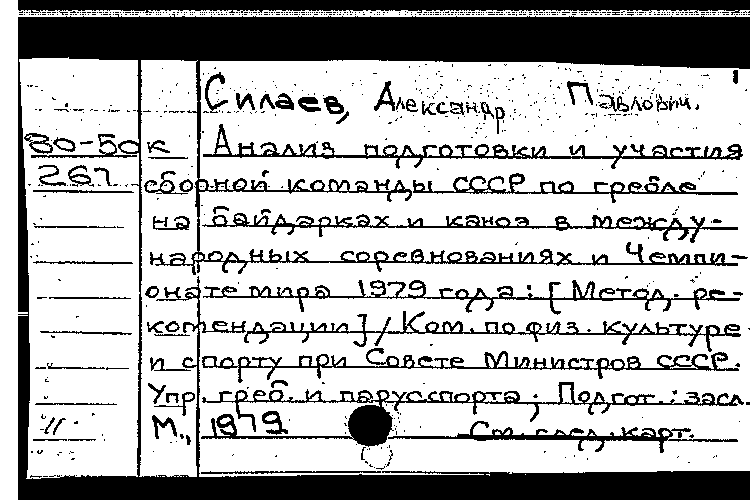 Силаев, Александр Павлович.
80-50к Анализ подготовки и участия
267 сборной команды СССР по гребле
на байдарках и каноэ в между-
народных соревнованиях и Чемпи-
онате мира 1979 года: [Метод. ре-
комендации] / Ком. по физ. культуре
и спорту при Совете Министров СССР.
Упр. греб. и парусспорта; Подгот.: засл.
М., 1979 См. след. карт.